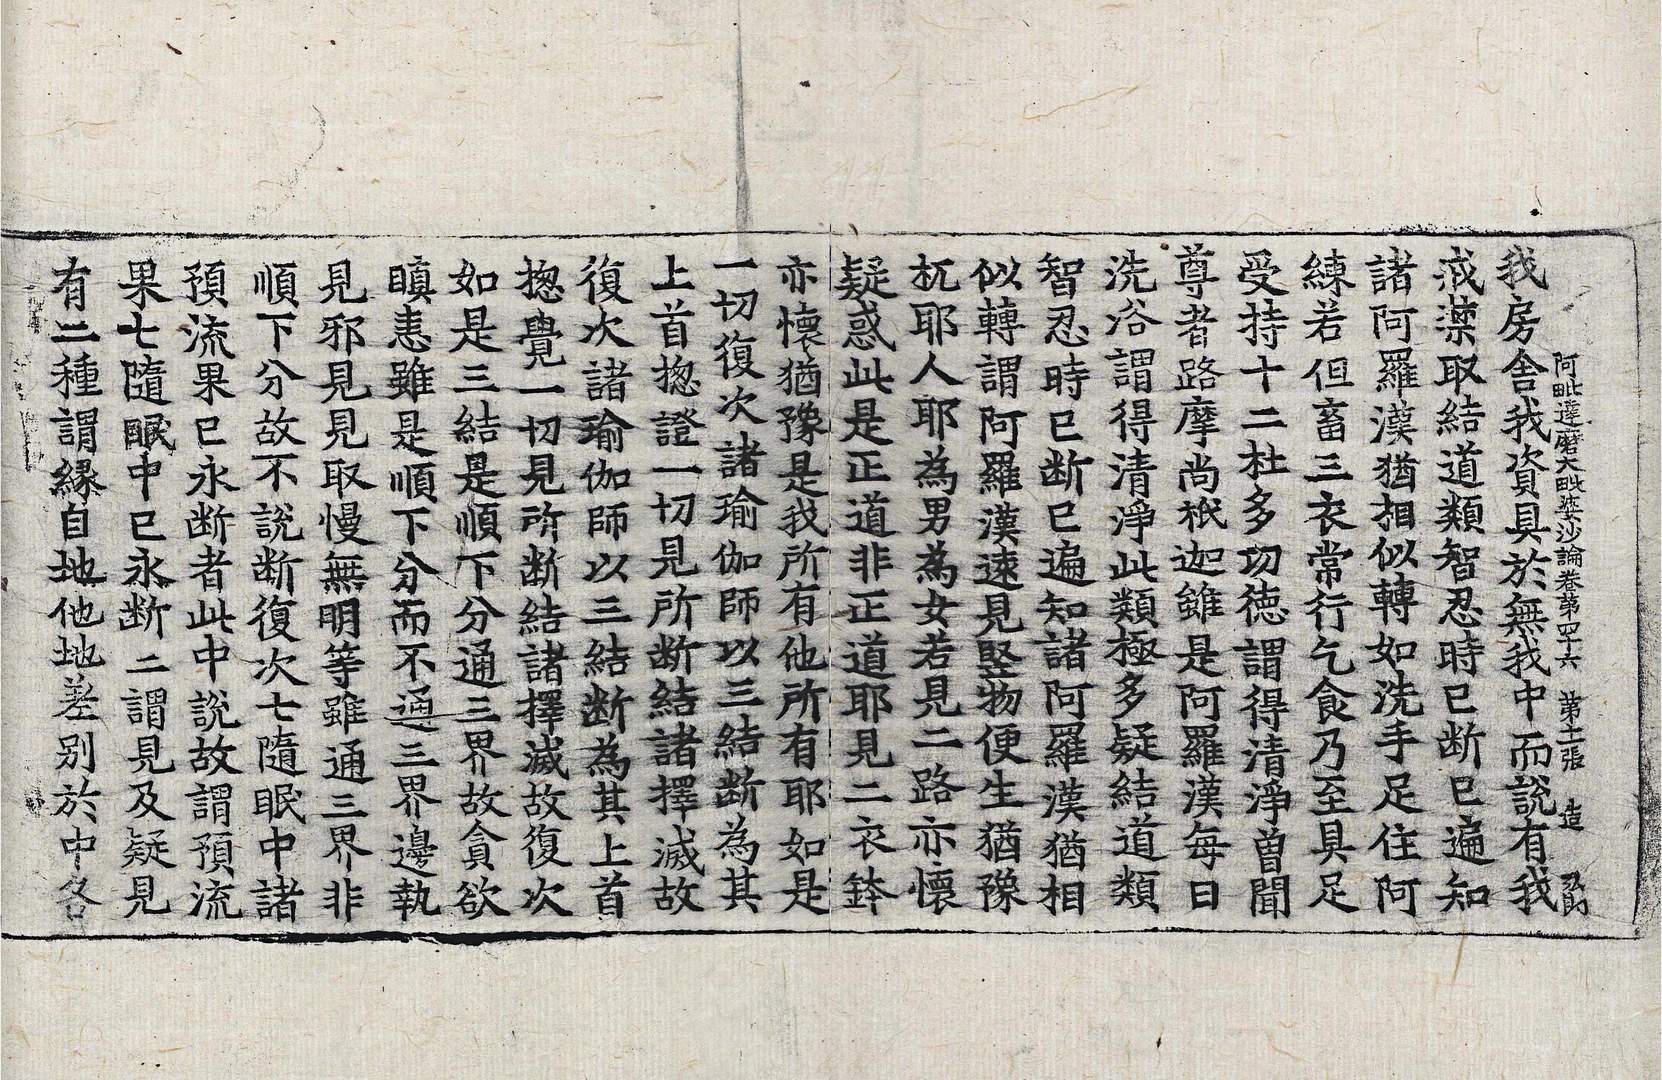 阿毗達磨大毗婆沙論卷第四十六 第十一張 造
我房舍我資具於無我中而說有我
戒禁取結道類智忍時已断已遍知
諸阿羅漢猶相似轉如洗手足住阿
練若但畜三衣常行乞食乃至具足
受持十二杜多功德謂得清淨曽聞
尊者路摩尚祇迦雖是阿羅漢每日
洗浴謂得清淨此類極多疑結道類
智忍時已断已遍知諸阿羅漢猶相
似轉謂阿羅漢遠見竪物便生猶豫
杌耶人耶為男為女若見二路亦懷
疑惑此是正道非正道耶見二衣鉢
亦懷猶豫是我所有他所有耶如是
一切復次諸瑜伽師以三結断為其
上首揔證一切見所断結諸擇滅故
復次諸瑜伽師以三結断為其上首
揔覺一切見所断結諸擇滅故復次
如是三結是順下分通三界故貪欲
瞋恚雖是順下分而不通三界邊執
見邪見見取慢無明等雖通三界非
順下分故不說断復次七隨眠中諸
預流果已永断者此中說故謂預流
果七隨眠中已永断二謂見及疑見
有二種謂緣自地他地差別於中各